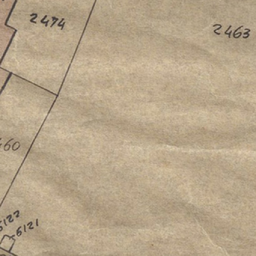 2474
2463
460
5122
5121